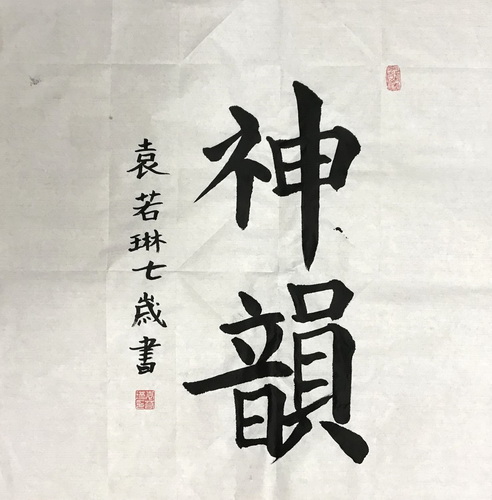 神韻
袁若琳七歲書